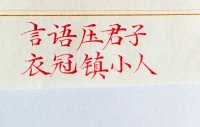 言语压君子
衣冠镇小人